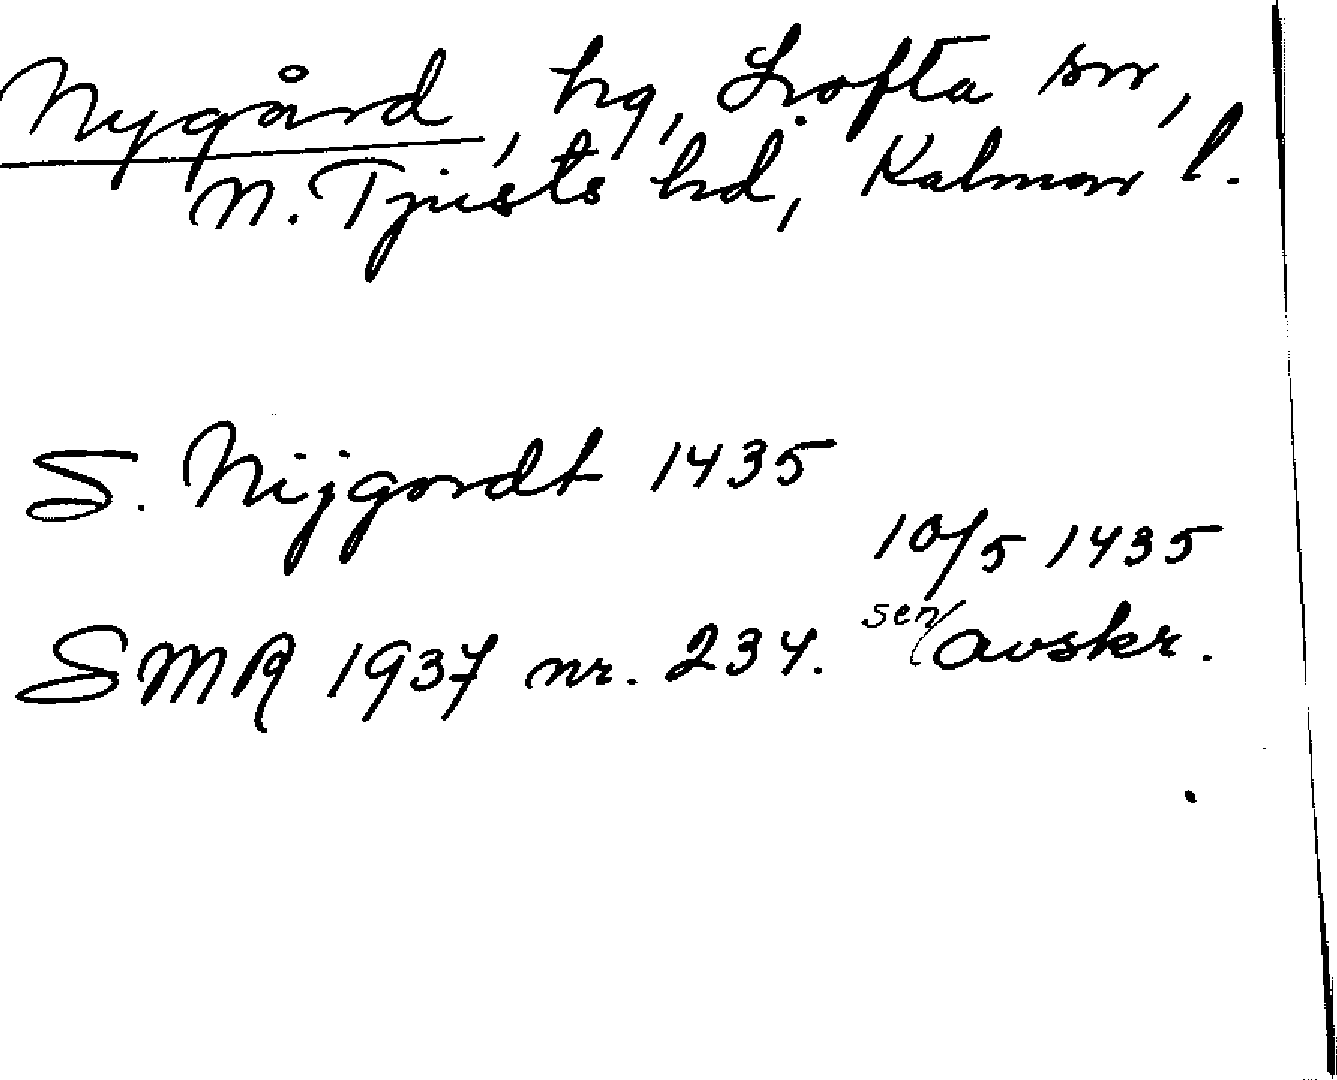 Nygård, hg, Lofta sn,
N. Tjusts hd, Kalmar l.
S. Nijgordt 1435
10/5 1435
SMR 1937 nr. 234. sen avskr.